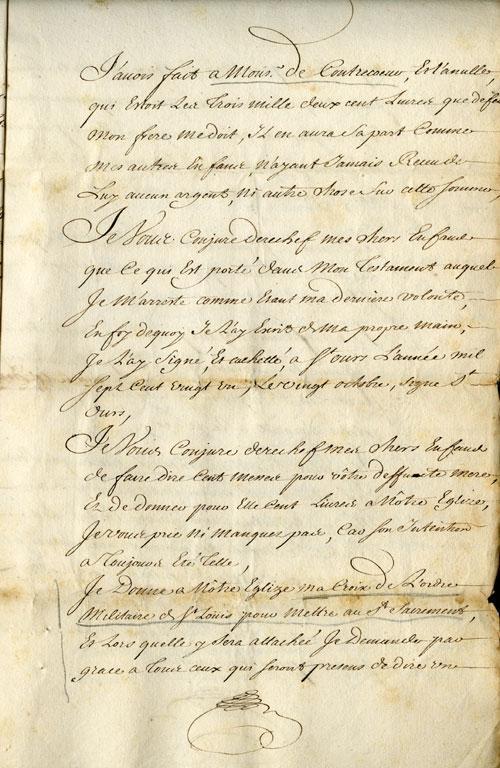 J'avois fait a Mons.r de Contrecoeur, Est annullé,
qui Estoit Les Trois mille deux cent Livres que deffeu
Mon frere me doit, Il en aura sa part Comme
mes autres Enfans, n'ayant Jamais Receu de
Luy aucun argent, ni autre chose sur cette somme,
Je Vous Conjure derechef mes chers Enfans
que Ce qui Est porté dans Mon Testament auquel
Je M'arreste comme Etant ma derniere volonté,
En foy de quoy Je L'ay Ecrit de Ma propre main,
Je L'ay Signé, Et cachetté, a St ours L'année mil
Sept Cent vingt un, Le vingt octobre, signé St
ours,
Je Vous Conjure derechef mes chers Enfans
de faire dire Cent Messes pour vôtre deffunte Mere,
Et de donner pour Elle Cent Livres a Nôtre Eglize,
Je vous prie ni manquez pas, Car son Intention
a Toujours Eté Telle,
Je Donne a Nôtre Eglize ma Croix de L'ordre
Militaire de St Louis pour Mettre au St Sacrement,
Et Lors quelle y Sera attachéé Je Demande par
grace a Tous ceux qui seront presens de dire un